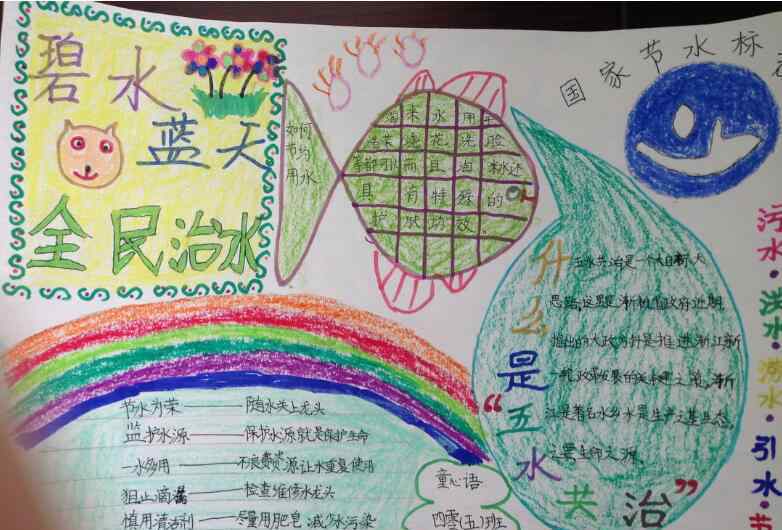 碧水
蓝天
全民治水
如何
节约
用水
淘米水用来
洗菜浇花洗脸
等都可以而且淘米水还
具有特殊的
护肤功效
国家节水标
什么是“五水共治”
五水共治是一个大的新的大
思路,这是浙江省政府近期
推出的大政方针是推进浙江新
一轮改革发展的关键之策,浙
江是著名水乡水是生产之基生态
之要生命之源
污水·洪水·涝水·引水·节
节水为荣——随水关上龙头
监护水源——保护水源就是保护生命
一水多用——不浪费资源让水重复使用
阻止滴漏——检查维修水龙头
慎用清洁剂——尽量用肥皂减少水污染
童心语
四零(五)班